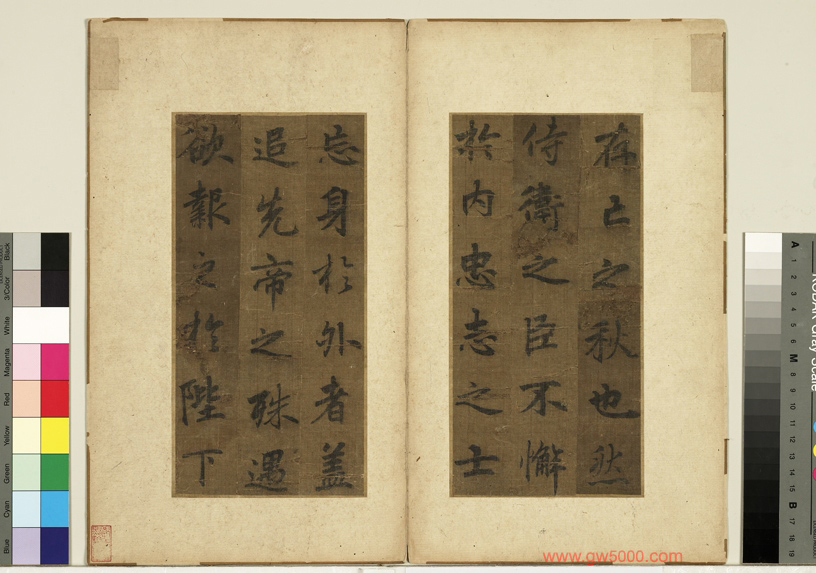 存亡之秋也然
侍衛之臣不懈
於內忠志之士
忘身於外者盖
追先帝之殊遇
欲報之於陛下
www.gw5000.com
Black
3/Color
White
Magenta
Red
Yellow
Green
Cyan
Blue
A
1
2
3
4
5
6
M
8
9
10
11
12
13
14
15
B
17
18
19